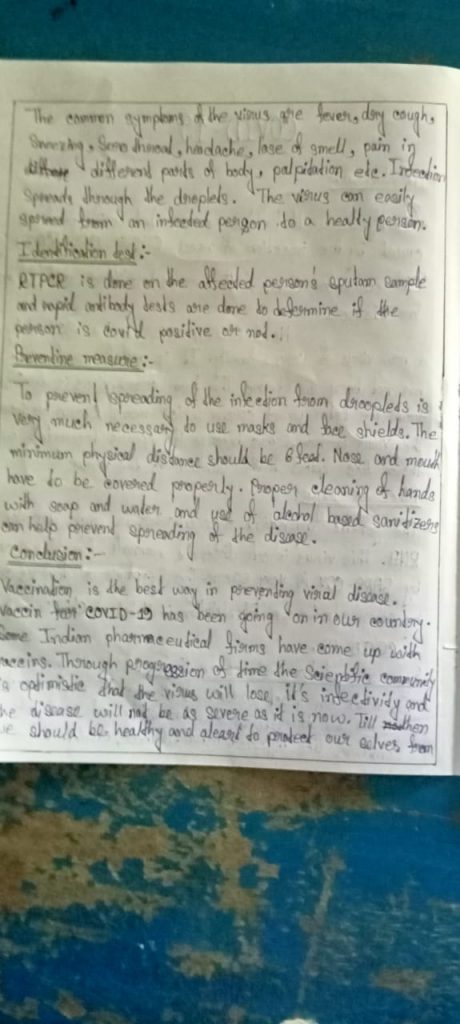 The common symptoms of the virus are fever, dry cough,
Sneezing, Sore throat, headache, lose of smell, pain in
different parts of body, palpitation etc. Infection
Spreads through the droplets. The virus can easily
spread from an infected person to a healty person.
Identification test :-
RTPCR is done on the affected person's sputam sample
and rapid antibody tests are done to determine if the
person is covid positive or not.
Preventine measure :-
To prevent spreading of the infection from droopleds is
very much necessary to use masks and face shields. The
minimum physical distance should be 6 feet. Nose and mouth
have to be covered properly. Proper cleaning of hands
with soap and water and use of alcohol based sanitizers
can help prevent spreading of the disease.
Conclusion :-
Vaccination is the best way in preventing viral disease.
vaccin for COVID-19 has been going on in our country.
Some Indian pharmaceutical firms have come up with
vaccins. Through progression of time the Scientific community
is optimistic that the virus will lose it's infectivity and
he disease will not be as severe as it is now. Till then
we should be healthy and aleart to protect our selves from